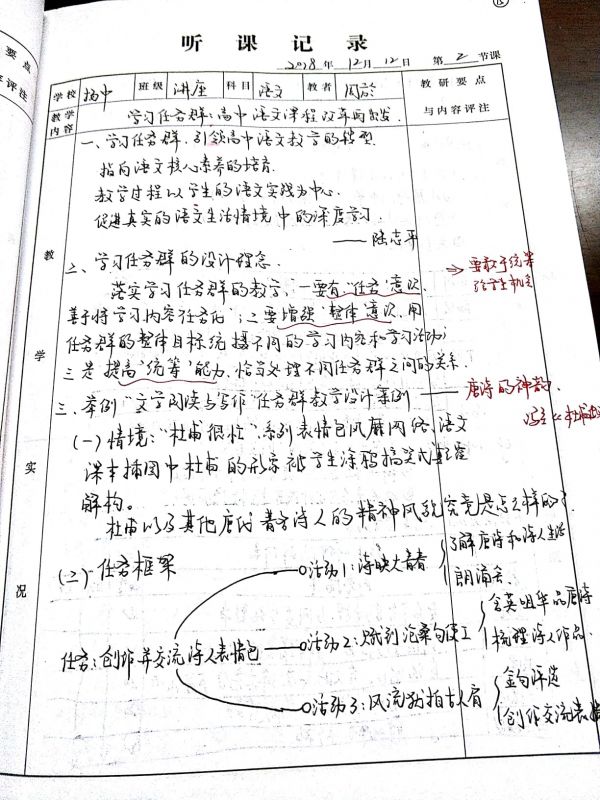 要点
评注
听课记录
2018年12月12日 第2节课
学校 扬中 班级 讲座 科目 语文 教者 周
教研要点
与内容评注
教学内容
学习任务群:高中语文课程改革再出发
一、学习任务群,引领高中语文教学的转型
指向语文核心素养的培育.
教学过程以学生的语文实践为中心.
促进真实的语文生活情境中的深度学习.
——陆志平
二、学习任务群的设计理念.
落实学习任务群的教学,一要有"任务"意识.
善于将学习内容任务化;二要增强"整体"意识.用
任务群的整体目标统摄不同的学习内容和学习活动;
三是提高"统筹"能力,恰当处理不同任务群之间的关系.
要敢于统筹
给学生机会
三、举例"文学阅读与写作"任务群教学设计案例——唐诗的神韵.
(一)情境:"杜甫很忙"系列表情包风靡网络,语文
课本插图中杜甫的形象被学生涂鸦搞笑式
解构。
杜甫以及其他唐代著名诗人的精神风貌究竟是怎样的?
(二)任务框架
任务:创作并交流诗人表情包
活动1:诗映大唐春
了解唐诗和诗人生活
朗诵会.
活动2:炼到沧桑句便工
含英咀华品唐诗
梳理诗人作品.
活动3:风流犹拍古人肩
金句评选
创作交流表
教学实况